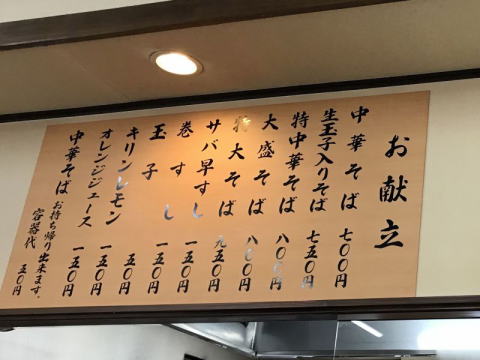 お献立
中華そば 七〇〇円
生玉子入りそば 七五〇円
特中華そば 八〇〇円
大盛そば 八〇〇円
特大そば 九五〇円
サバ早すし 一五〇円
巻すし 一五〇円
玉子 五〇円
キリンレモン 一五〇円
オレンジジュース 一五〇円
中華そば お持ち帰り出来ます。
容器代 五〇円